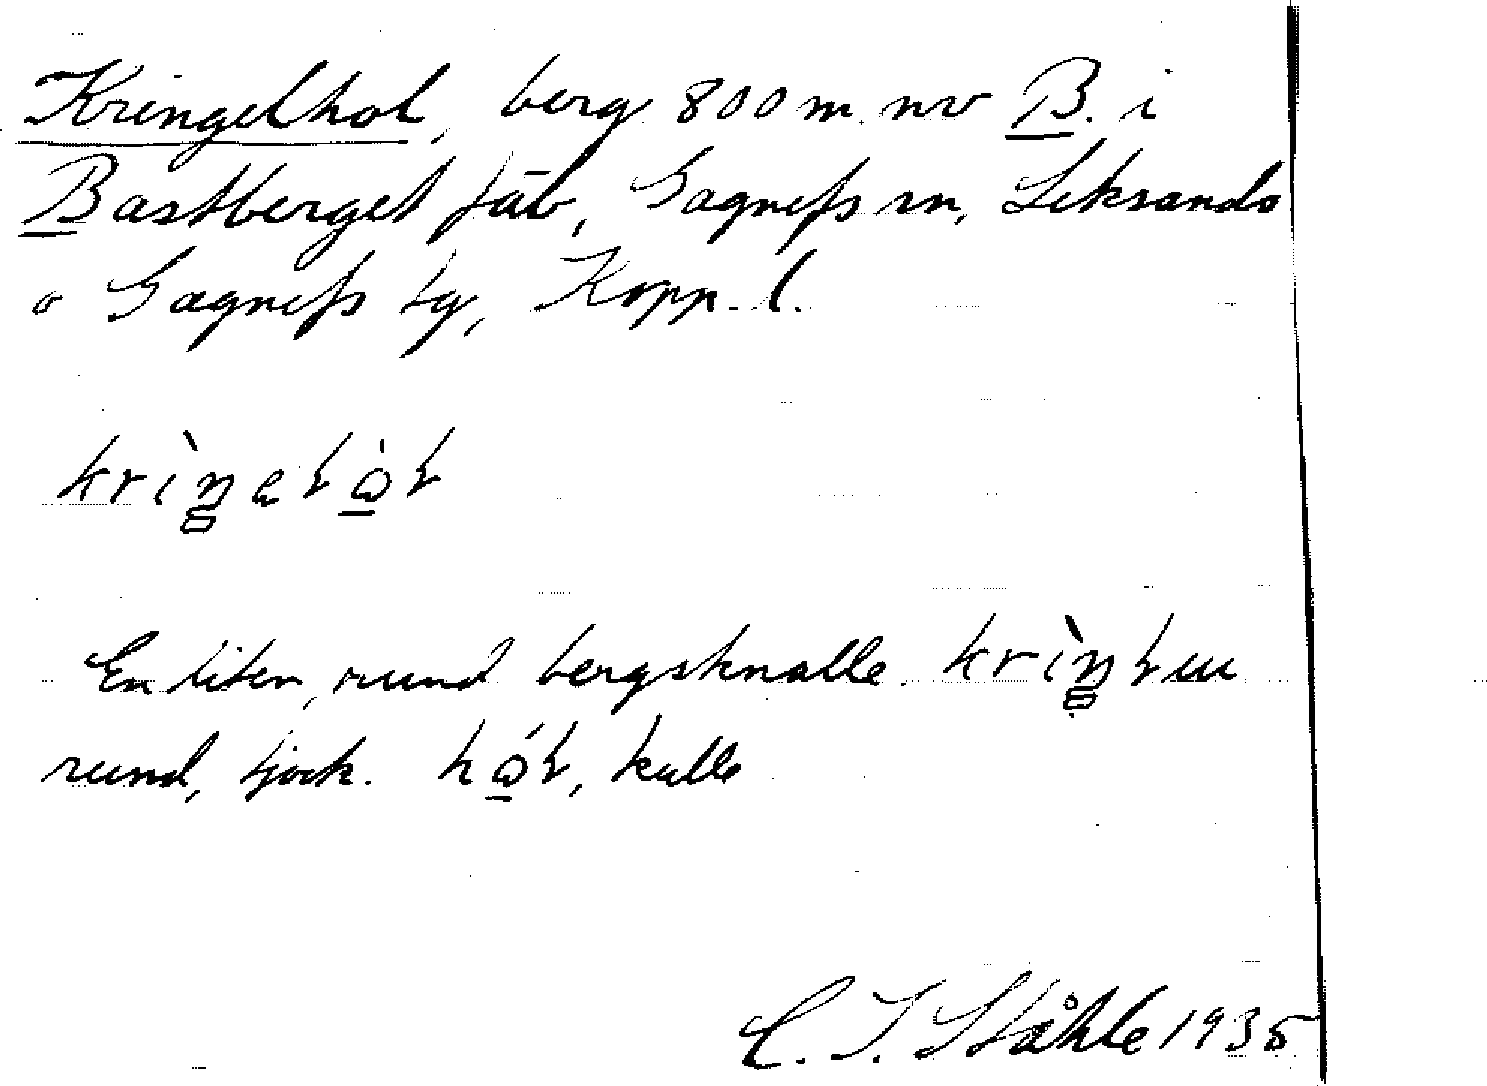 Kringelhol, berg 800 m. nv B. i
Bastberget fäb, Gagnefs sn, Leksands
o Gagnefs tg, Kopp. l.
En liten, rund bergsknalle.
rund, tjock. kulle
C. I. Ståhle 1935